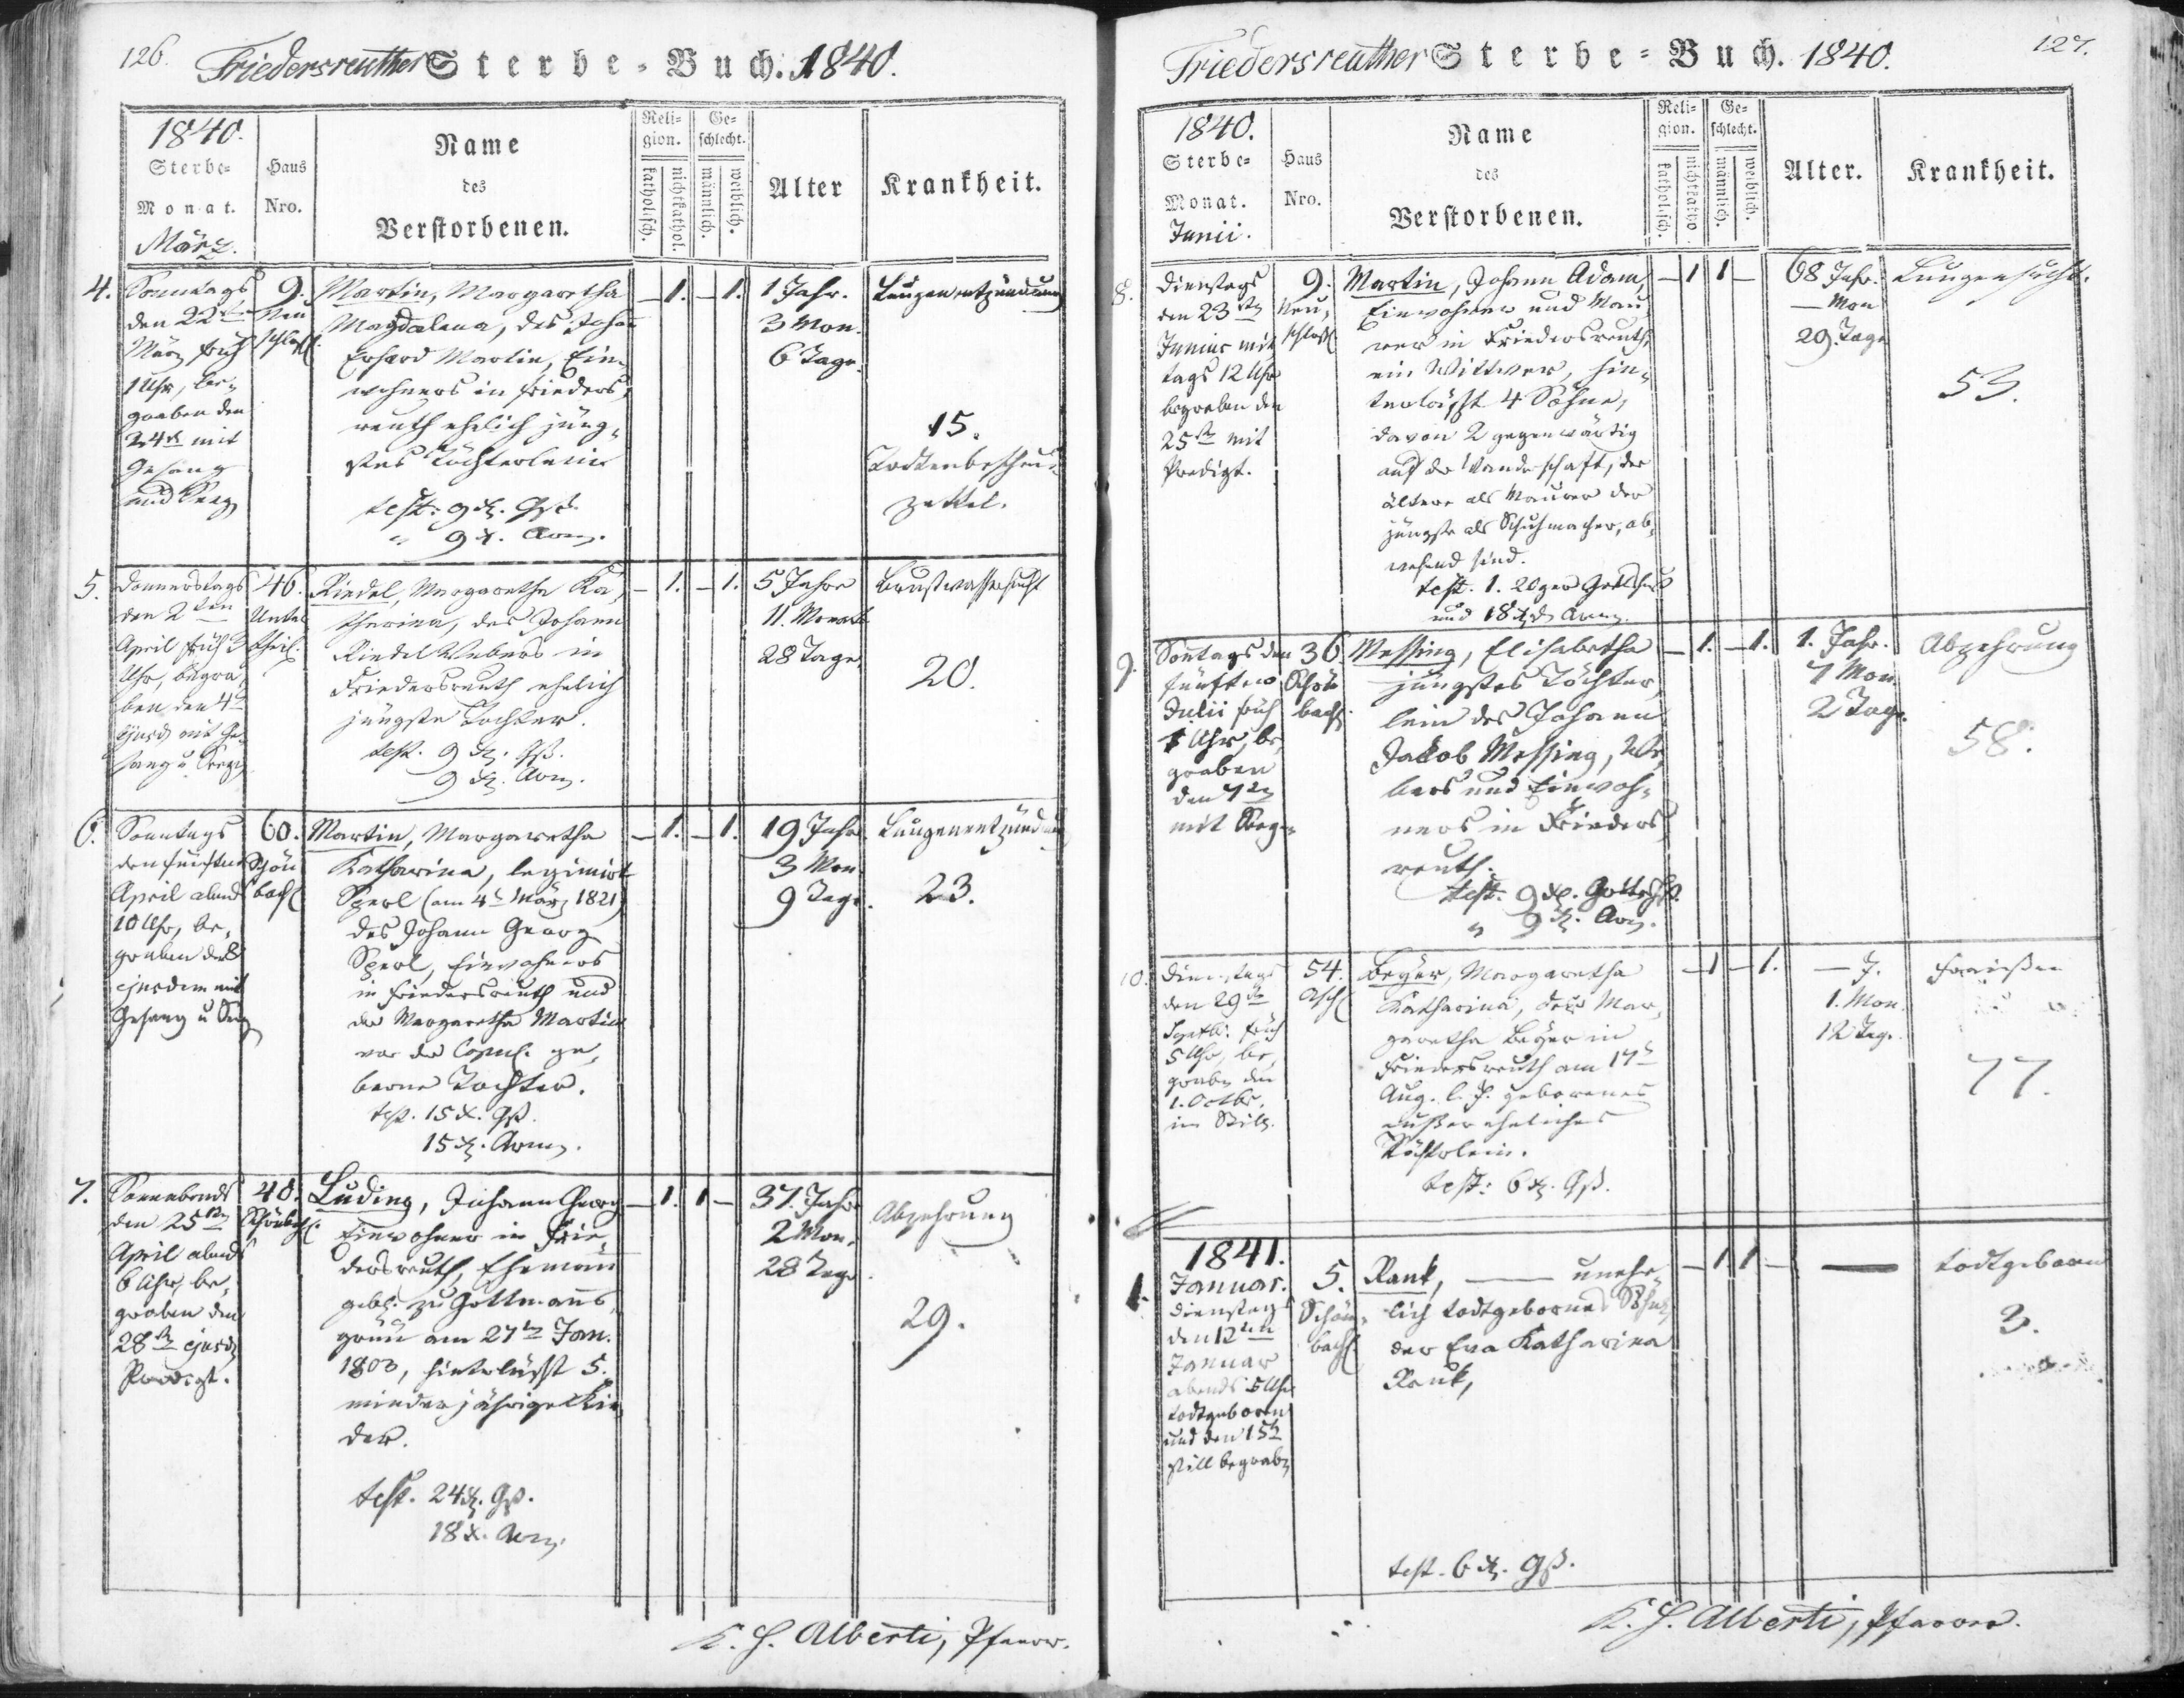 126.
Friedersreuther Sterbe-Buch. 1840.
1840.
Sterbe-
Monat.
März.
Haus
Nro.
Name
des
Verstorbenen.
Reli-
gion.
katholisch.
nichtkathol.
Ge-
schlecht.
männlich.
weiblich.
Alter
Krankheit.
4.
Sonntags
den 22
März früh
1 Uhr, be-
graben den
24 mit
Gesang
und Seg
9.
Neu
schloß
Martin, Margaretha
Magdalena, des Johann
Erhard Martin, Ein-
wohners in Frieders-
reuth ehelich jüng-
stes Töchterlein
test: 9 x. Gß.
" 9 x. Arm.
- 1. - 1.
1 Jahr.
3 Mon.
6 Tage.
Lungenentzündung
15.
Todtenbeschau-
zettel.
5.
Donnerstags
den 2ten
April früh 3
Uhr, begra-
ben den 4
ejusd mit Ge-
sang u Seg
46.
Unter
theil.
Riedel, Margaretha Ka-
tharina, des Johann
Riedel Webers in
Friedersreuth ehelich
jüngste Tochter.
test. 9 x. Gß.
9 x. Arm.
- 1. - 1.
5 Jahre
11. Monate
28 Tage.
Brustwassersucht
20.
6.
Sonntags
den fünften
April abends
10 Uhr, be-
graben den 8
ejusdem mit
Gesang u Seg
60.
Schön
bach
Martin, Margaretha
Katharina, legimirt
Sperl (am 4 März 1821)
des Johann Georg
Sperl, Einwohners
in Friedersreuth und
der Margaretha Martin
vor der Copul. ge-
borne Tochter.
test. 15 x. Gß.
15 x. Arm.
- 1. - 1.
19 Jahr
3 Mon.
9 Tage.
Lungenentzündung
23.
7.
Sonnabends
den 25
April abends
6 Uhr, be-
graben den
28 ejusd
Predigt.
48.
Schönbach.
Luding, Johann Georg
Einwohner in Frie-
dersreuth, Ehemann
geb. zu Gottmanns-
grün am 27 Jan.
1803, hinterläßt 5.
minderjährige Kin-
der.
test. 24 x. Gß.
18 x. Arm.
- 1. 1 -
37. Jahr
2 Mon.
28 Tage.
Abzehrung
29.
K. H. Alberti, Pfarrer.
127.
Friedersreuther Sterbe-Buch. 1840.
1840.
Sterbe-
Monat.
Junii.
Haus
Nro.
Name
des
Verstorbenen.
Reli-
gion.
katholisch.
nichtkatho.
Ge-
schlecht.
männlich.
weiblich.
Alter.
Krankheit.
8.
Dienstags
den 23
Junius mit-
tags 12 Uhr
begraben den
25 mit
Predigt.
9.
Neu-
schloß
Martin, Johann Adam,
Einwohner und Mau-
rer in Friedersreuth,
ein Wittwer, hin-
terläßt 4 Söhne,
davon 2 gegenwärtig
auf der Wanderschaft, der
ältere als Maurer der
jüngste als Schuhmacher, ab-
wesend sind.
test. 1. 20ger Gotteshaus
und 18 x. d. Arm.
- 1 1 -
68 Jahr.
- Mon
29. Tage
Lungensucht.
53.
9.
Sontags den
fünften
Julii früh
1 Uhr, be-
graben
den 7
mit Segen
36.
Schön
bach.
Messing, Elisabetha
jüngstes Töchter-
lein des Johann
Jakob Messing, We-
bers und Einwoh-
ners in Frieders-
reuth.
test. 9 x. Gottesh.
" 9 x. Arm.
- 1. - 1.
1. Jahr.
7 Mon.
2 Tage.
Abzehrung
58.
10.
Dienstags
den 29
Septbr. früh
5 Uhr, be-
grab. den
1. Octbr.
im Still.
54.
Asch
Beyer, Margaretha
Katharina, der Mar-
garetha Beyer in
Friedersreuth am 17
Aug. l. J. geborenes
außereheliches
Töchterlein.
test: 6 x. Gß.
- 1 - 1.
- J.
1. Mon.
12 Tage.
Fraißen
77.
1841.
1.
Januar.
Dienstags
den 12ten
Januar
abends 5 Uhr
todtgeboren
und den 15
still begrab.
5.
Schön-
bach
Rank, — unehe-
lich todtgeborner Sohn
der Eva Katharina
Rank,
test. 6 x. Gß.
- 1 1 -
—
todtgeboren
3.
K. H. Alberti, Pfarrer.